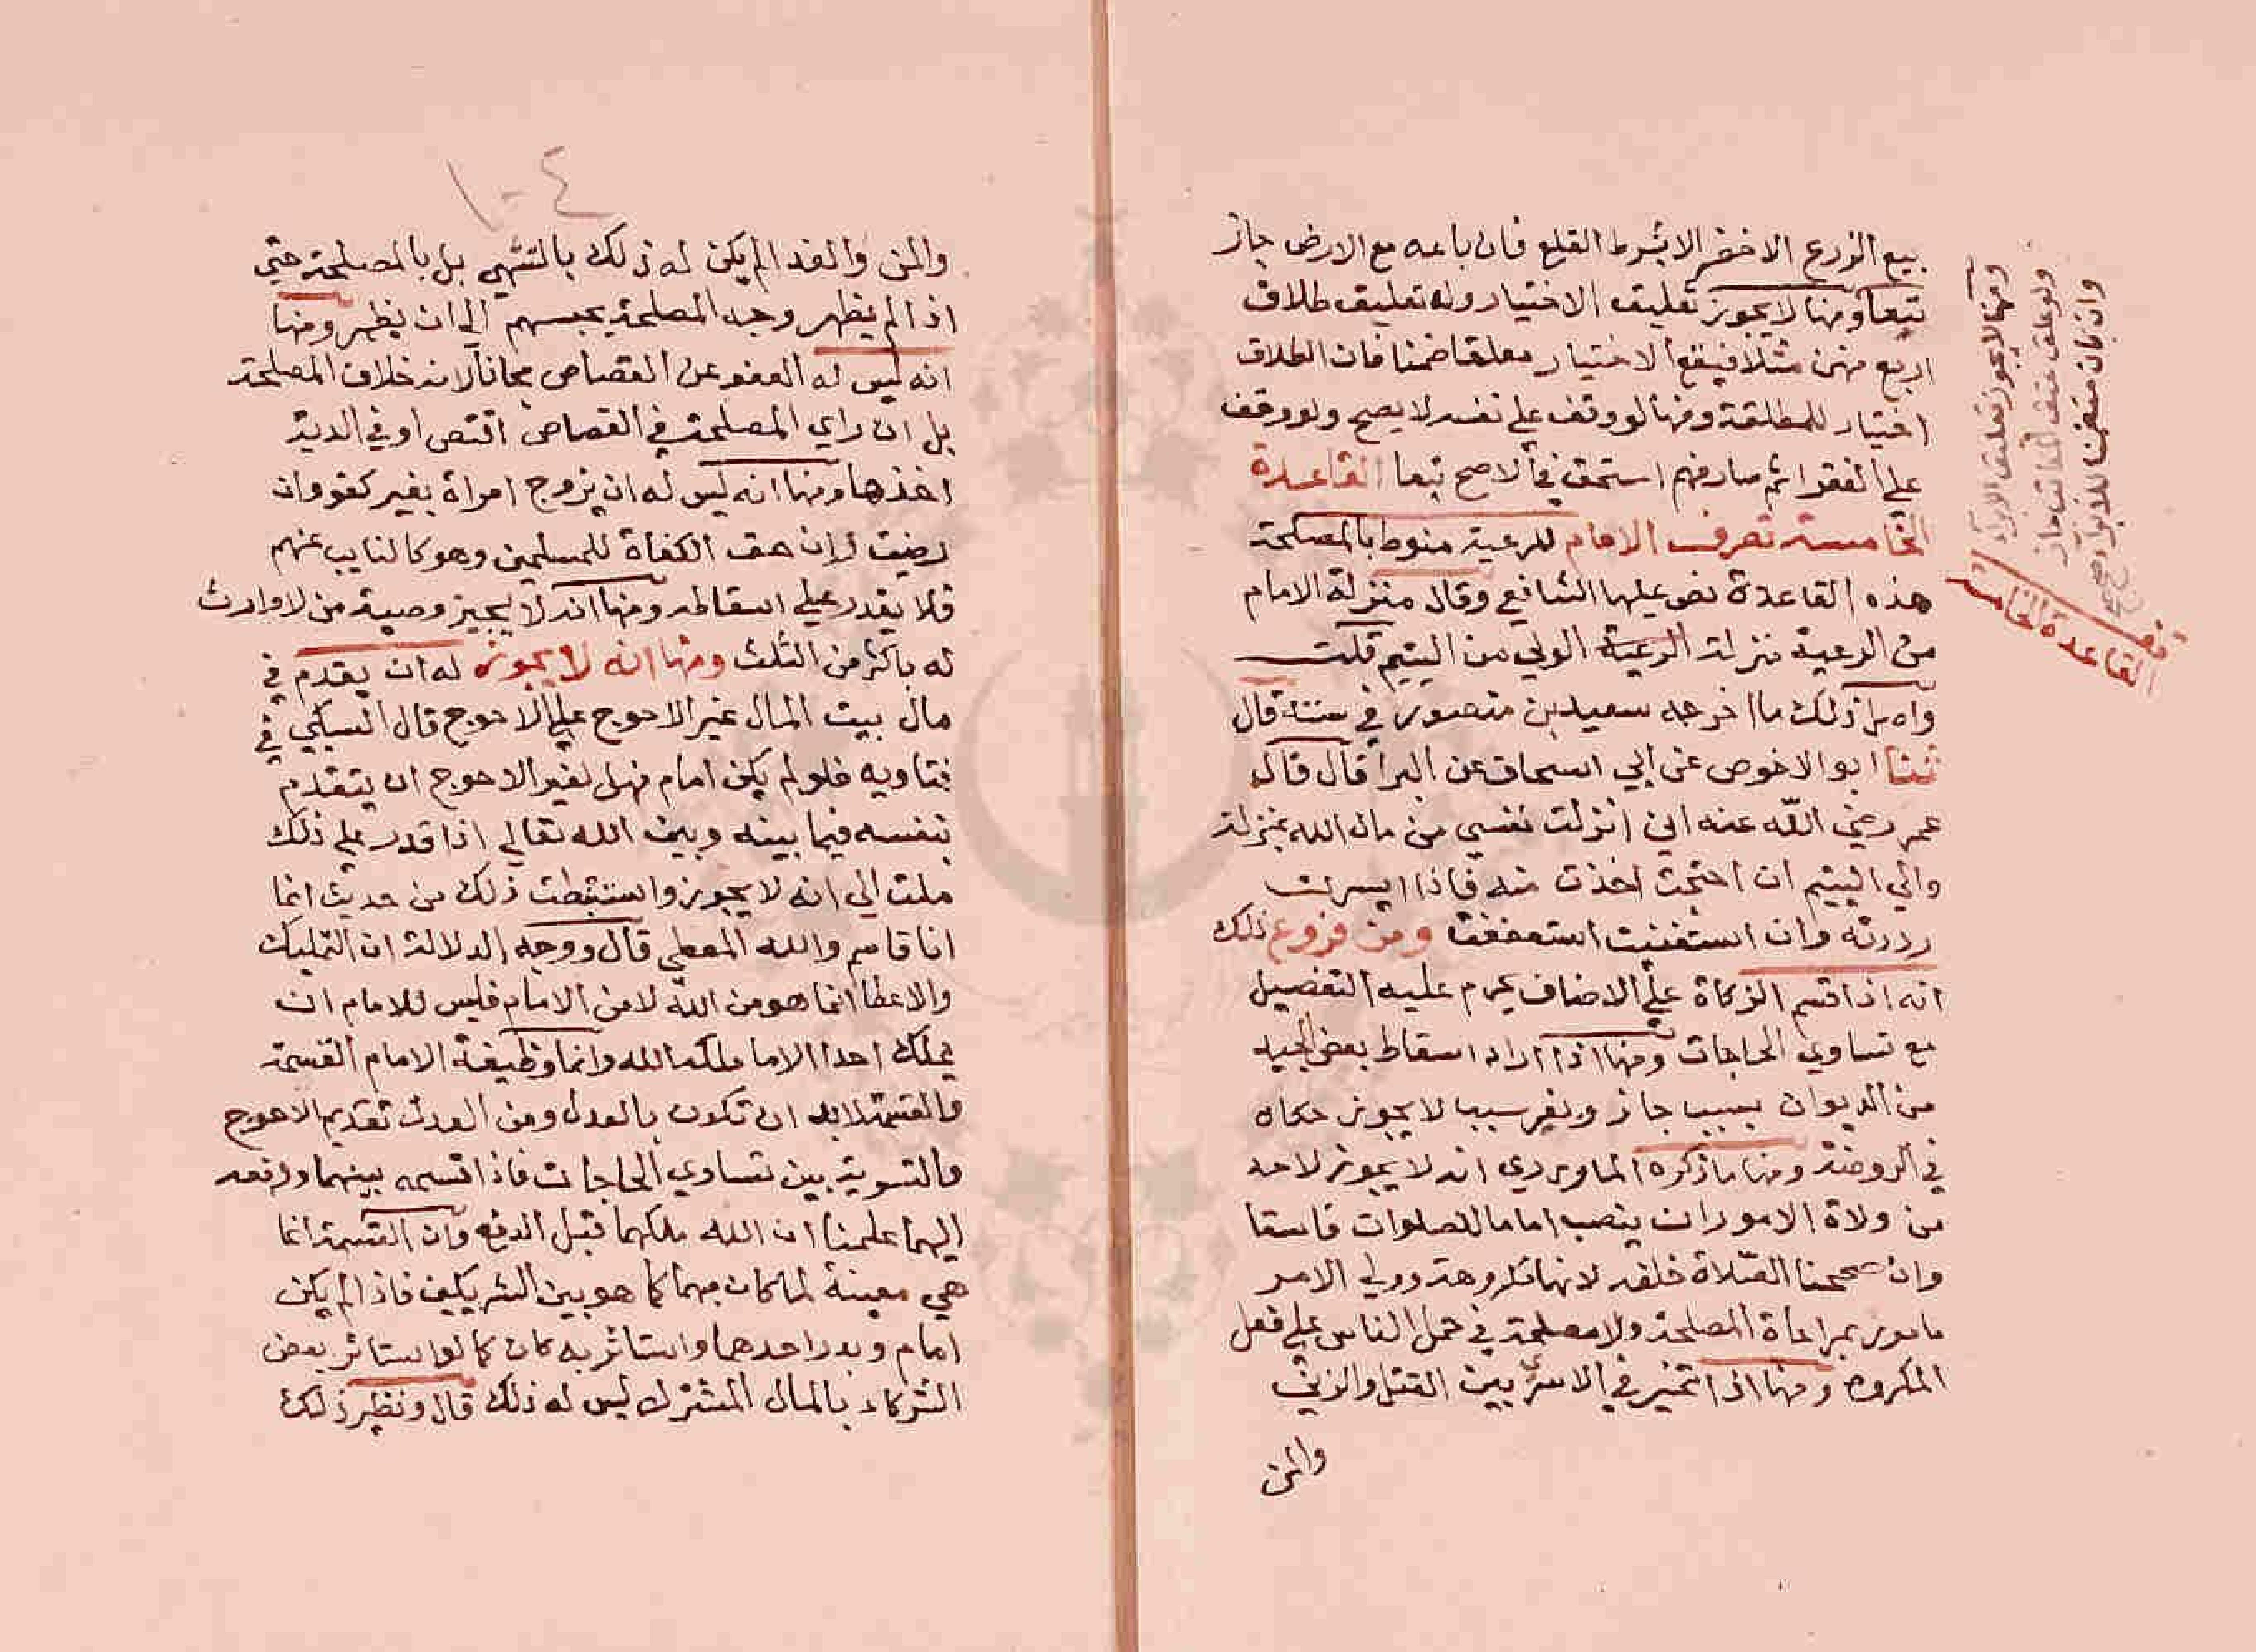 بيع الزرع الاخضر الا بشرط القلع فان باعه مع الارض جاز
تبعا ومنها لا يجوز تعليق الاختيار وله تعليق طلاق
اربع منهن مثلا فيقع الاختيار معلقا ضمنا فان الطلاق
اختيار للمطلقة ومنها لو وقف على نفسه لا يصح ولو وقف
على الفقرا ثم صار منهم استحق في الاصح تبعا القاعدة
الخامسة تصرف الامام للرعية منوط بالمصلحة
هذه القاعدة نص عليها الشافعي وقال منزلة الامام
من الرعية منزلة الرعية الولي من اليتيم قلت
واصل ذلك ما اخرجه سعيد بن منصور في سننه قال
ثنا ابو الاخوص عن ابي اسحاق عن البرا قال قال
عمر رضي الله عنه اني انزلت نفسي من مال الله بمنزلة
والي اليتيم ان احتجت اخذت منه فاذا ايسرت
رددته وان استغنيت استعففت ومن فروع ذلك
انه اذا قسم الزكاة على الاصناف يحرم عليه التفضيل
مع تساوي الحاجات ومنها اذا اراد اسقاط بعض الجند
من الديوان بسبب جاز وبغير سبب لا يجوز حكاه
في الروضة ومنها ما ذكره الماوردي انه لا يجوز لاحد
من ولاة الامور ان ينصب اماما للصلوات فاسقا
وان صححنا الصلاة خلفه لانها مكروهة وولي الامر
مامور بمراعاة المصلحة ولا مصلحة في حمل الناس على فعل
المكروه ومنها اذا تخير في الاسرى بين القتل والرق
والمن
ومنها لا يجوز تعليق الابرآء
ولو علق عتق المكاتب جاز
وان كان متضمنا للابرآء صح
قف
القاعدة الخامسة
١٠٤
والمن والفدا لم يكن له ذلك بالتشهي بل بالمصلحة حتى
اذا لم يظهر وجه المصلحة يحبسهم الى ان يظهر ومنها
انه ليس له العفو عن القصاص مجانا لانه خلاف المصلحة
بل ان راي المصلحة في القصاص اقتص او في الدية
اخذها ومنها انه ليس له ان يزوج امراة بغير كفو وان
رضيت لان حق الكفاة للمسلمين وهو كالنايب عنهم
فلا يقدر على اسقاطه ومنها انه لا يجيز وصية من لا وارث
له باكثر من الثلث ومنها انه لا يجوز له ان يقدم في
مال بيت المال غير الاحوج على الاحوج قال السبكي في
فتاويه فلو لم يكن امام فهل لغير الاحوج ان يتقدم
بنفسه فيما بينه وبين الله تعالي اذا قدر على ذلك
ملت الى انه لا يجوز واستنبطت ذلك من حديث انما
انا قاسم والله المعطي قال ووجه الدلالة ان التمليك
والاعطا انما هو من الله لا من الامام فليس للامام ان
يملك احدا الا ما ملكه الله وانما وظيفة الامام القسمة
والقسمة لا بد ان تكون بالعدل ومن العدل تقديم الاحوج
والتسوية بين تساوي الحاجات فاذا قسمه بينهما ودفعه
اليهما علمنا ان الله ملكهما قبل الدفع وان القسمة انما
هي معينة لما كان مبهما كما هو بين الشريكين فاذا لم يكن
امام وبدر احدهما واستاثر به كان كما لو استاثر بعض
الشركاء بالمال المشترك ليس له ذلك قال ونظير ذلك